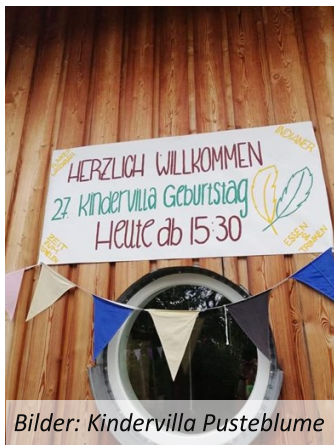 INDIANER
HERZLICH WILLKOMMEN
27. Kindervilla Geburtstag
Heute ab 15:30
ESSEN &
TRINKEN
Bilder: Kindervilla Pusteblume